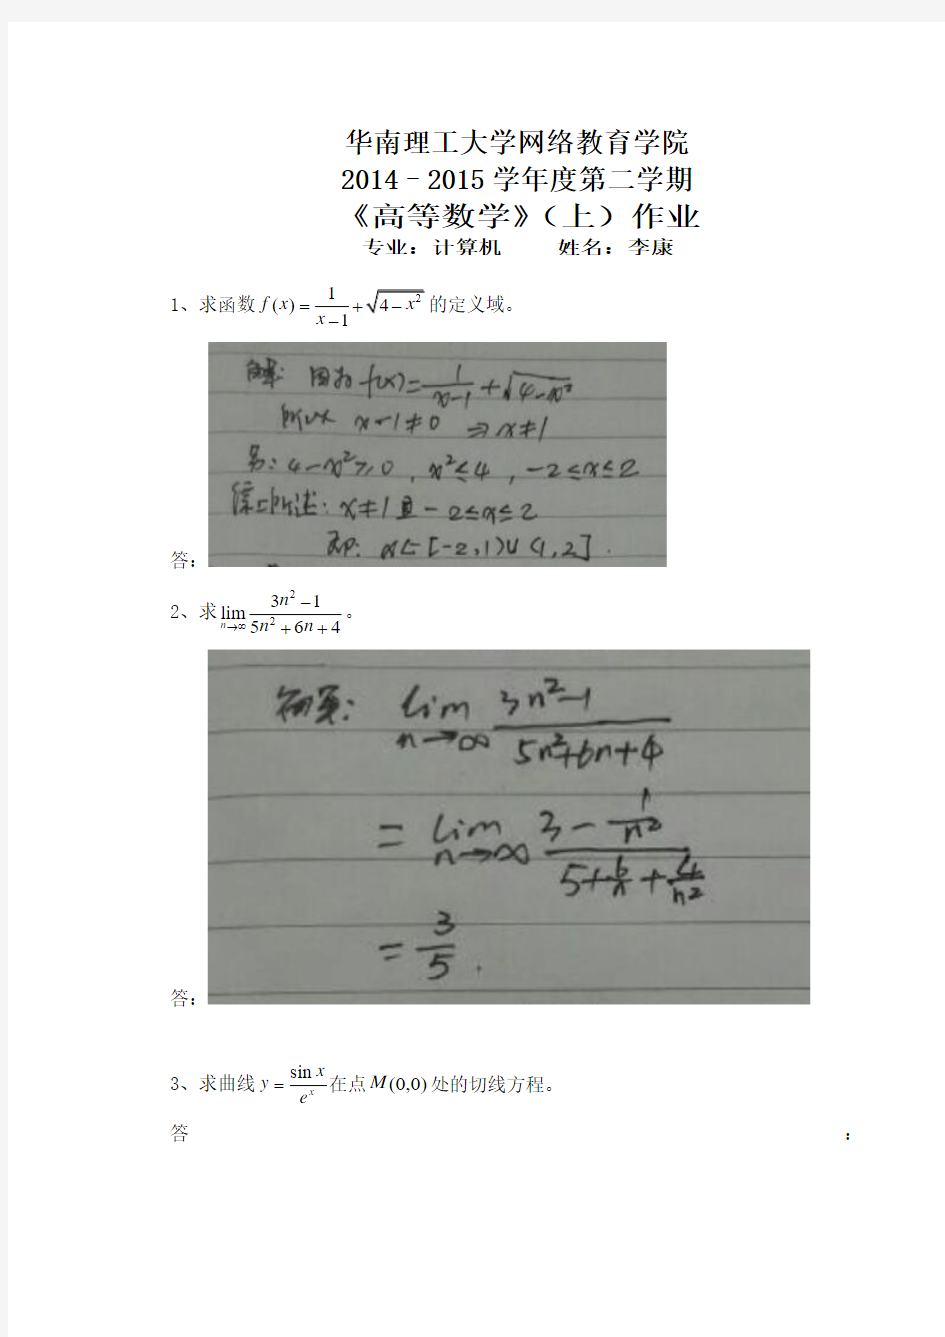 华南理工大学网络教育学院
2014–2015学年度第二学期
《高等数学》（上）作业
专业：计算机 姓名：李康
1、求函数 f(x) = 1/(x−1) + √(4−x²) 的定义域。
解：因为 f(x) = 1/(x−1) + √(4−x²)
所以 x−1≠0 ⇒ x≠1
另：4−x²≥0，x²≤4，−2≤x≤2
综上所述：x≠1且−2≤x≤2
即：x∈[−2,1)∪(1,2].
答：
2、求 lim n→∞ (3n²−1)/(5n²+6n+4)。
解： lim n→∞ (3n²−1)/(5n²+6n+4)
= lim n→∞ (3−1/n²)/(5+6/n+4/n²)
= 3/5.
答：
3、求曲线 y = sin x/eˣ 在点 M(0,0) 处的切线方程。
答 ：